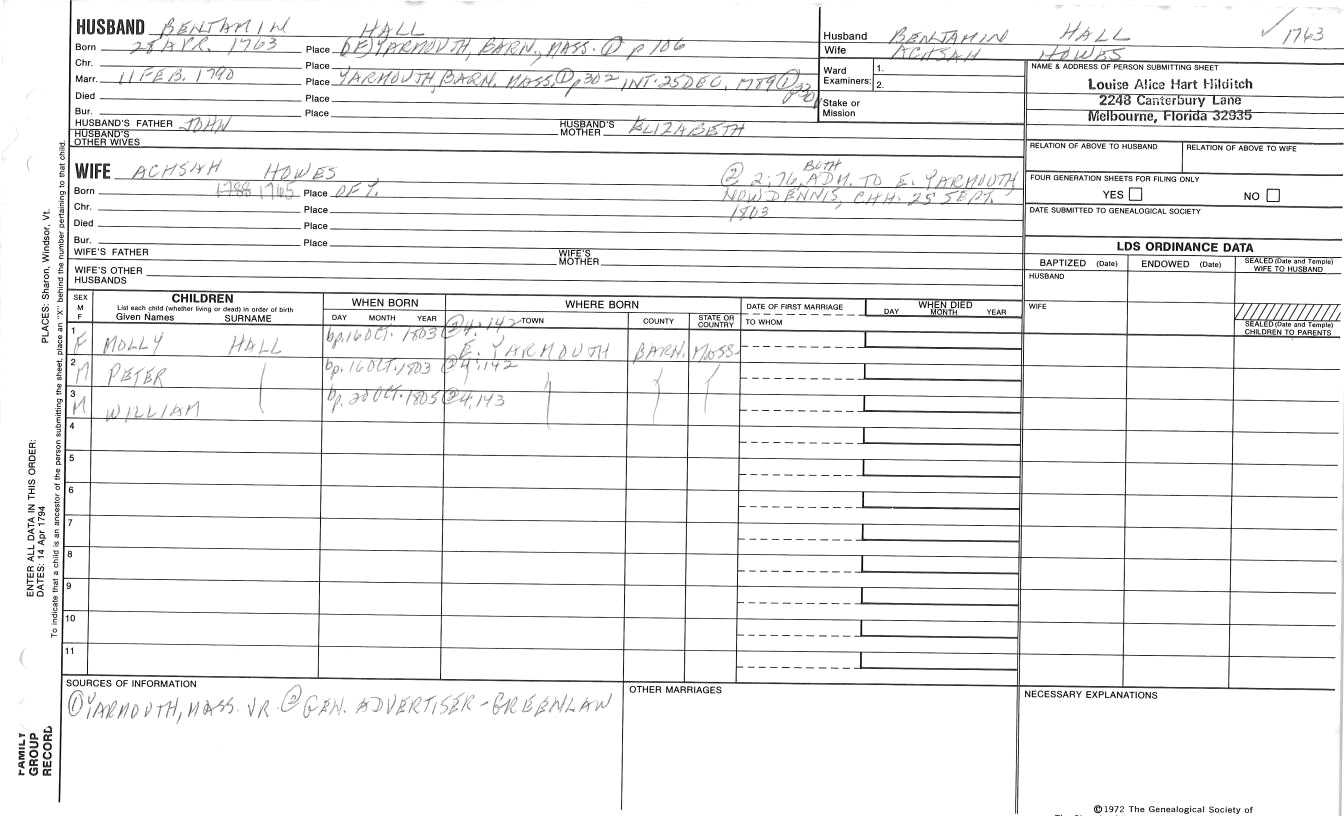 HUSBAND BENJAMIN HALL
Born 28 APR. 1763 Place (DE) YARMOUTH, BARN., MASS. ① p 106
Chr. Place
Marr. 11 FEB. 1790 Place YARMOUTH, BARN. MASS. ① p 302 INT. 25 DEC, 1789 ①
Died Place
Bur. Place
HUSBAND'S FATHER JOHN HUSBAND'S MOTHER ELIZABETH
HUSBAND'S OTHER WIVES
Husband BENJAMIN HALL ✓ 1763
Wife ACHSAH HOWES
Ward Examiners: 1.
2.
Stake or Mission
NAME & ADDRESS OF PERSON SUBMITTING SHEET
Louise Alice Hart Hilditch
2248 Canterbury Lane
Melbourne, Florida 32935
RELATION OF ABOVE TO HUSBAND RELATION OF ABOVE TO WIFE
FOUR GENERATION SHEETS FOR FILING ONLY
YES NO
DATE SUBMITTED TO GENEALOGICAL SOCIETY
WIFE ACHSAH HOWES
Born 1788 1765 Place OF Y.
Chr. Place
Died Place
Bur. Place
WIFE'S FATHER WIFE'S MOTHER
WIFE'S OTHER HUSBANDS
BOTH
② 2:76, ADM. TO E. YARMOUTH
NOW DENNIS, CHH. 25 SEPT.
1803
LDS ORDINANCE DATA
BAPTIZED (Date) ENDOWED (Date) SEALED (Date and Temple) WIFE TO HUSBAND
HUSBAND
WIFE
SEALED (Date and Temple) CHILDREN TO PARENTS
SEX M F
CHILDREN
List each child (whether living or dead) in order of birth
Given Names SURNAME
WHEN BORN
DAY MONTH YEAR
WHERE BORN
TOWN COUNTY STATE OR COUNTRY
DATE OF FIRST MARRIAGE
TO WHOM
WHEN DIED
DAY MONTH YEAR
1 F MOLLY HALL bp. 16 OCT. 1803 ② 4:142 E. YARMOUTH BARN. MASS.
2 M PETER bp. 16 OCT. 1803 ② 4:142
3 M WILLIAM bp. 20 OCT. 1805 ② 4:143
4
5
6
7
8
9
10
11
SOURCES OF INFORMATION
① YARMOUTH, MASS. VR. ② GEN. ADVERTISER - GREENLAW
OTHER MARRIAGES
NECESSARY EXPLANATIONS
©1972 The Genealogical Society of
PLACES: Sharon, Windsor, Vt.
To indicate that a child is an ancestor of the person submitting the sheet, place an "X" behind the number pertaining to that child.
ENTER ALL DATA IN THIS ORDER:
DATES: 14 Apr 1794
FAMILY GROUP RECORD